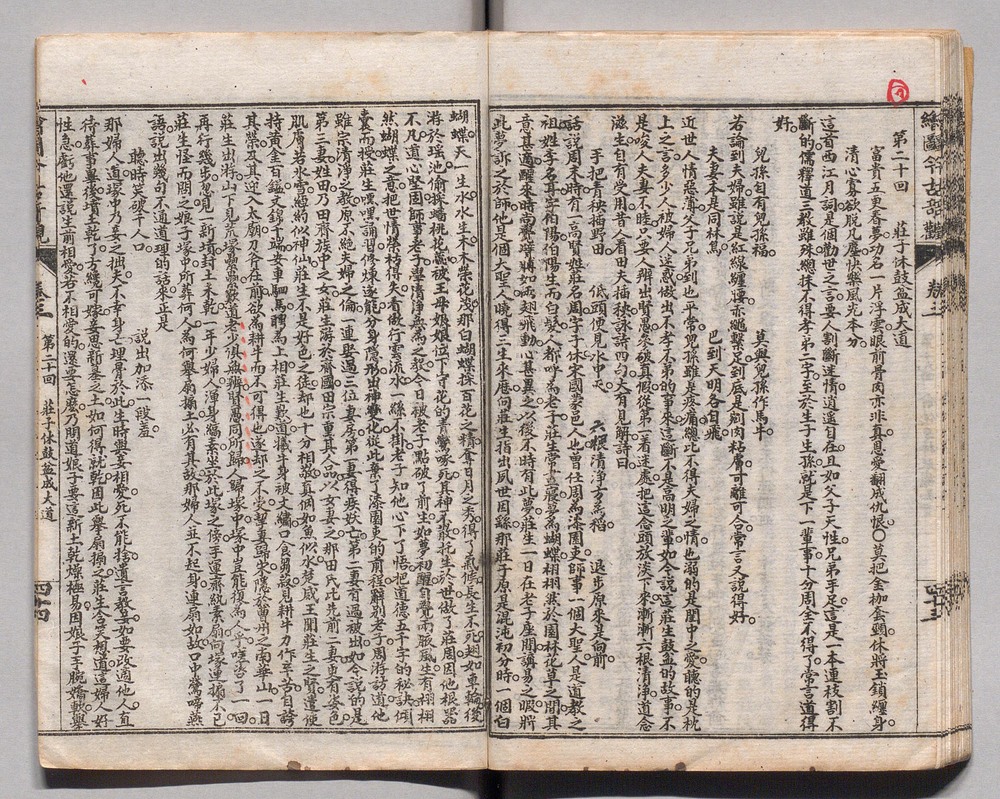 繪圖今古奇觀
卷三
四十三
第二十回　莊子休鼓盆成大道
富貴五更春夢功名一片浮雲眼前骨肉亦非真恩愛翻成仇恨〇莫把金枷套頸休將玉鎖纏身
清心寡欲脫凡塵快樂風光本分
這首西江月詞是個勸世之言要人割斷迷情逍遙自在且如父子天性兄弟手足這是一本連枝割不
斷的儒釋道三教雖殊總抹不得孝弟二字至於生子生孫就是下一輩事十分周全不得了常言道得
好
兒孫自有兒孫福　莫與兒孫作馬牛
若論到夫婦雖說是紅線纏腰赤繩繫足到底是剜肉粘膚可離可合常言又說得好
夫妻本是同林鳥　巴到天明各自飛
近世人情惡薄父子兄弟到也平常兒孫雖是疼痛總比不得夫婦之情他溺的是閨中之愛聽的是枕
上之言多少人被婦人迷惑做出不孝不弟的事來這斷不是高明之輩如今說這莊生鼓盆的故事不
是唆人夫妻不睦只要人辨出賢愚參破真假從第一着迷處把這念頭放淡下來漸漸六根清淨道念
滋生自有受用昔人看田夫插秧詠詩四句大有見解詩曰
手把青秧插野田　低頭便見水中天　六根清淨方為稻　退步原來是向前
話說周末時有一高賢姓莊名周字子休宋國蒙邑人也曾仕周為漆園吏師事一個大聖人是道教之
祖姓李名耳字伯陽伯陽生而白髮人都呼為老子莊生常晝寢夢為蝴蝶栩栩然於園林花草之間其
意甚適醒來時尚覺臂膊如兩翅飛動心甚異之以後不時有此夢莊生一日在老子座間講易之暇將
此夢訴之於師他是個大聖人曉得三生來歷向莊生指出夙世因緣那莊子原是混沌初分時一個白
蝴蝶天一生水水生木木榮花茂那白蝴蝶採百花之精奪日月之秀得了氣候長生不死翅如車輪後
游於瑤池偷採蟠桃花蕊被王母娘娘位下守花的青鸞啄死其神不散托生於世做了莊周因他根器
不凡道心堅固師事老子學清淨無為之教今日被老子點破了前生如夢初醒自覺兩腋風生有栩栩
然蝴蝶之意把世情榮枯得失看做行雲流水一絲不掛老子知他心下了悟把道德五千字的秘訣傾
囊而授莊生嘿嘿誦習修煉遂能分身隱形出神變化從此棄了漆園吏的前程辭別老子周游訪道他
雖宗清淨之教原不絕夫婦之倫一連娶過三位妻房第一妻得疾妖亡第二妻有過被出如今說的是
第三妻姓田乃田齊族中之女莊生游於齊國田宗重其人品以女妻之那田氏比先前二妻更有姿色
肌膚若冰雪綽約似神仙莊生不是好色之徒卻也十分相敬真個如魚似水楚威王聞莊生之賢遣使
持黃金百鎰文錦千端安車駟馬聘為上相莊生歎道犧牛身被文繡口食芻菽見耕牛力作辛苦自誇
其榮及其迎入太廟刀斧在前欲為耕牛而不可得也遂卻之不受挈妻歸宋隱於曹州之南華山一日
莊生出游山下見荒塚纍纍歎道老少俱無辨賢愚同所歸人歸塚中塚中豈能復為人乎嗟咨了一回
再行幾步忽見一新墳封土未乾一年少婦人渾身縞素坐於此塚之傍手運齊紈素扇向塚連搧不已
莊生怪而問之娘子塚中所葬何人為何舉扇搧土必有其故那婦人並不起身運扇如故口中鶯啼燕
語說出幾句不通道理的話來正是
聽時笑破千人口　說出加添一段羞
那婦人道塚中乃妾之拙夫不幸身亡埋骨於此生時與妾相愛死不能捨遺言教妾如要改適他人直
待葬事畢後墳土乾了方纔可嫁妾思新築之土如何得就乾因此舉扇搧之莊生含笑想道這婦人好
性急虧他還說生前相愛若不相愛的還要怎麼乃問道娘子要這新土乾燥極易因娘子手腕嬌軟舉
繪圖今古奇觀
卷三
第二十回　莊子休鼓盆成大道
四十四